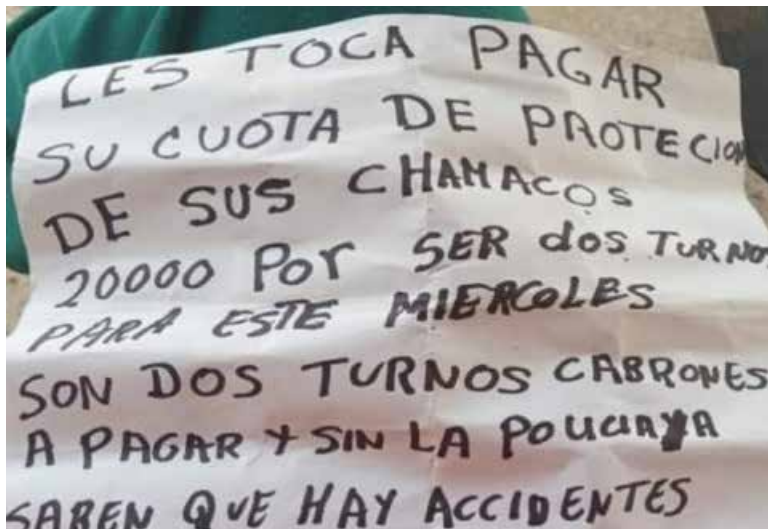 LES TOCA PAGAR
SU CUOTA DE PROTECION
DE SUS CHAMACOS
20000 POR SER dos TURNOS
PARA ESTE MIERCOLES
SON DOS TURNOS CABRONES
A PAGAR Y SIN LA POLICIA YA
SABEN QUE HAY ACCIDENTES